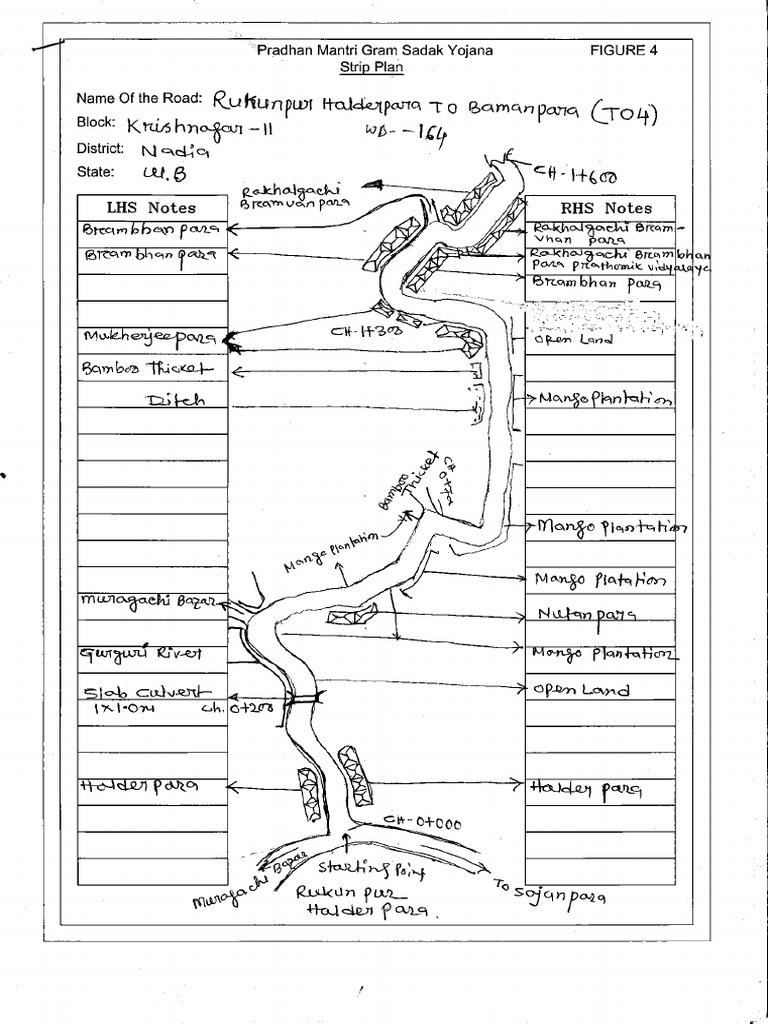 Pradhan Mantri Gram Sadak Yojana FIGURE 4
Strip Plan
Name Of the Road: Rukunpur Halderpara To Bamanpara (T04)
Block: Krishnagar-II WB--164
District: Nadia
State: W.B
CH-1+600
Rakhalgachi
Bramvanpara
LHS Notes
RHS Notes
Brambhan para
Rakhalgachi Bram-
vhan para
Brambhan para
Rakhalgachi Brambhan
para prathomik vidyalaye
Brambhan para
CH-1+300
Mukherjeepara
Open Land
Bamboo Thicket
Ditch
Mango Plantation
Bamboo
Thicket
CH
Mango Plantation
Mango Plantation
Mango Platation
Muragachi Bazar
Nutanpara
Gurguri River
Mongo Plantation
Slab Culvert
Open Land
1x1.0m Ch. 0+200
Halder para
Halder para
CH-0+000
Muragachi Bazar
Starting Point
Rukun pur
Halder Para.
To Sojanpara